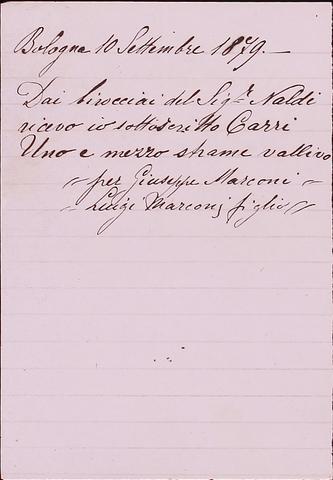 Bologna 10 Settembre 1879.—
Dai birocciai del Sig.r Naldi
ricevo io sottoscritto Carri
Uno e mezzo strame vallivo
per Giuseppe Marconi
Luigi Marconj figlio